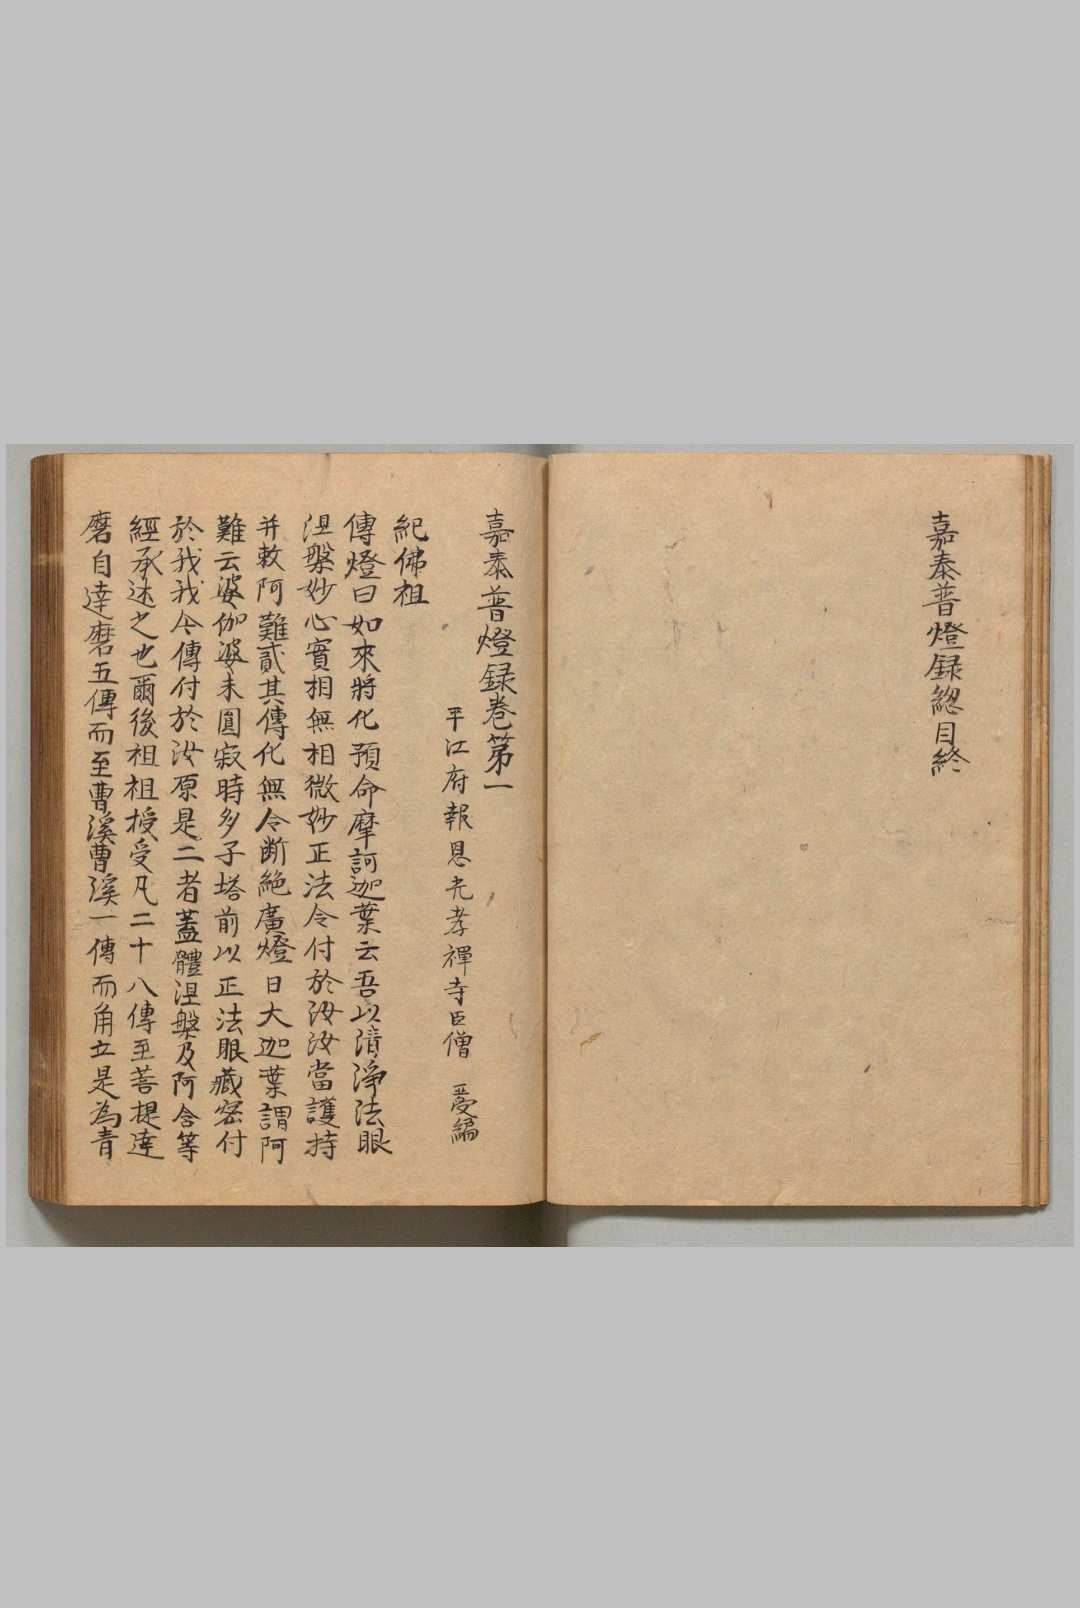 嘉泰普燈録緫目終
嘉泰普燈録卷第一
平江府報恩光孝禪寺臣僧　受編
紀佛祖
傳燈曰如來將化預命摩訶迦葉云吾以清淨法眼
涅槃妙心實相無相微妙正法令付於汝汝當護持
并敕阿難貳其傳化無令断絶廣燈曰大迦葉謂阿
難云婆伽婆未圓寂時多子塔前以正法眼藏密付
於我我今傳付於汝原是二者蓋體涅槃及阿含等
經承述之也爾後祖祖授受凡二十八傳至菩提達
磨自達磨五傳而至曹溪曹溪一傳而角立是為青